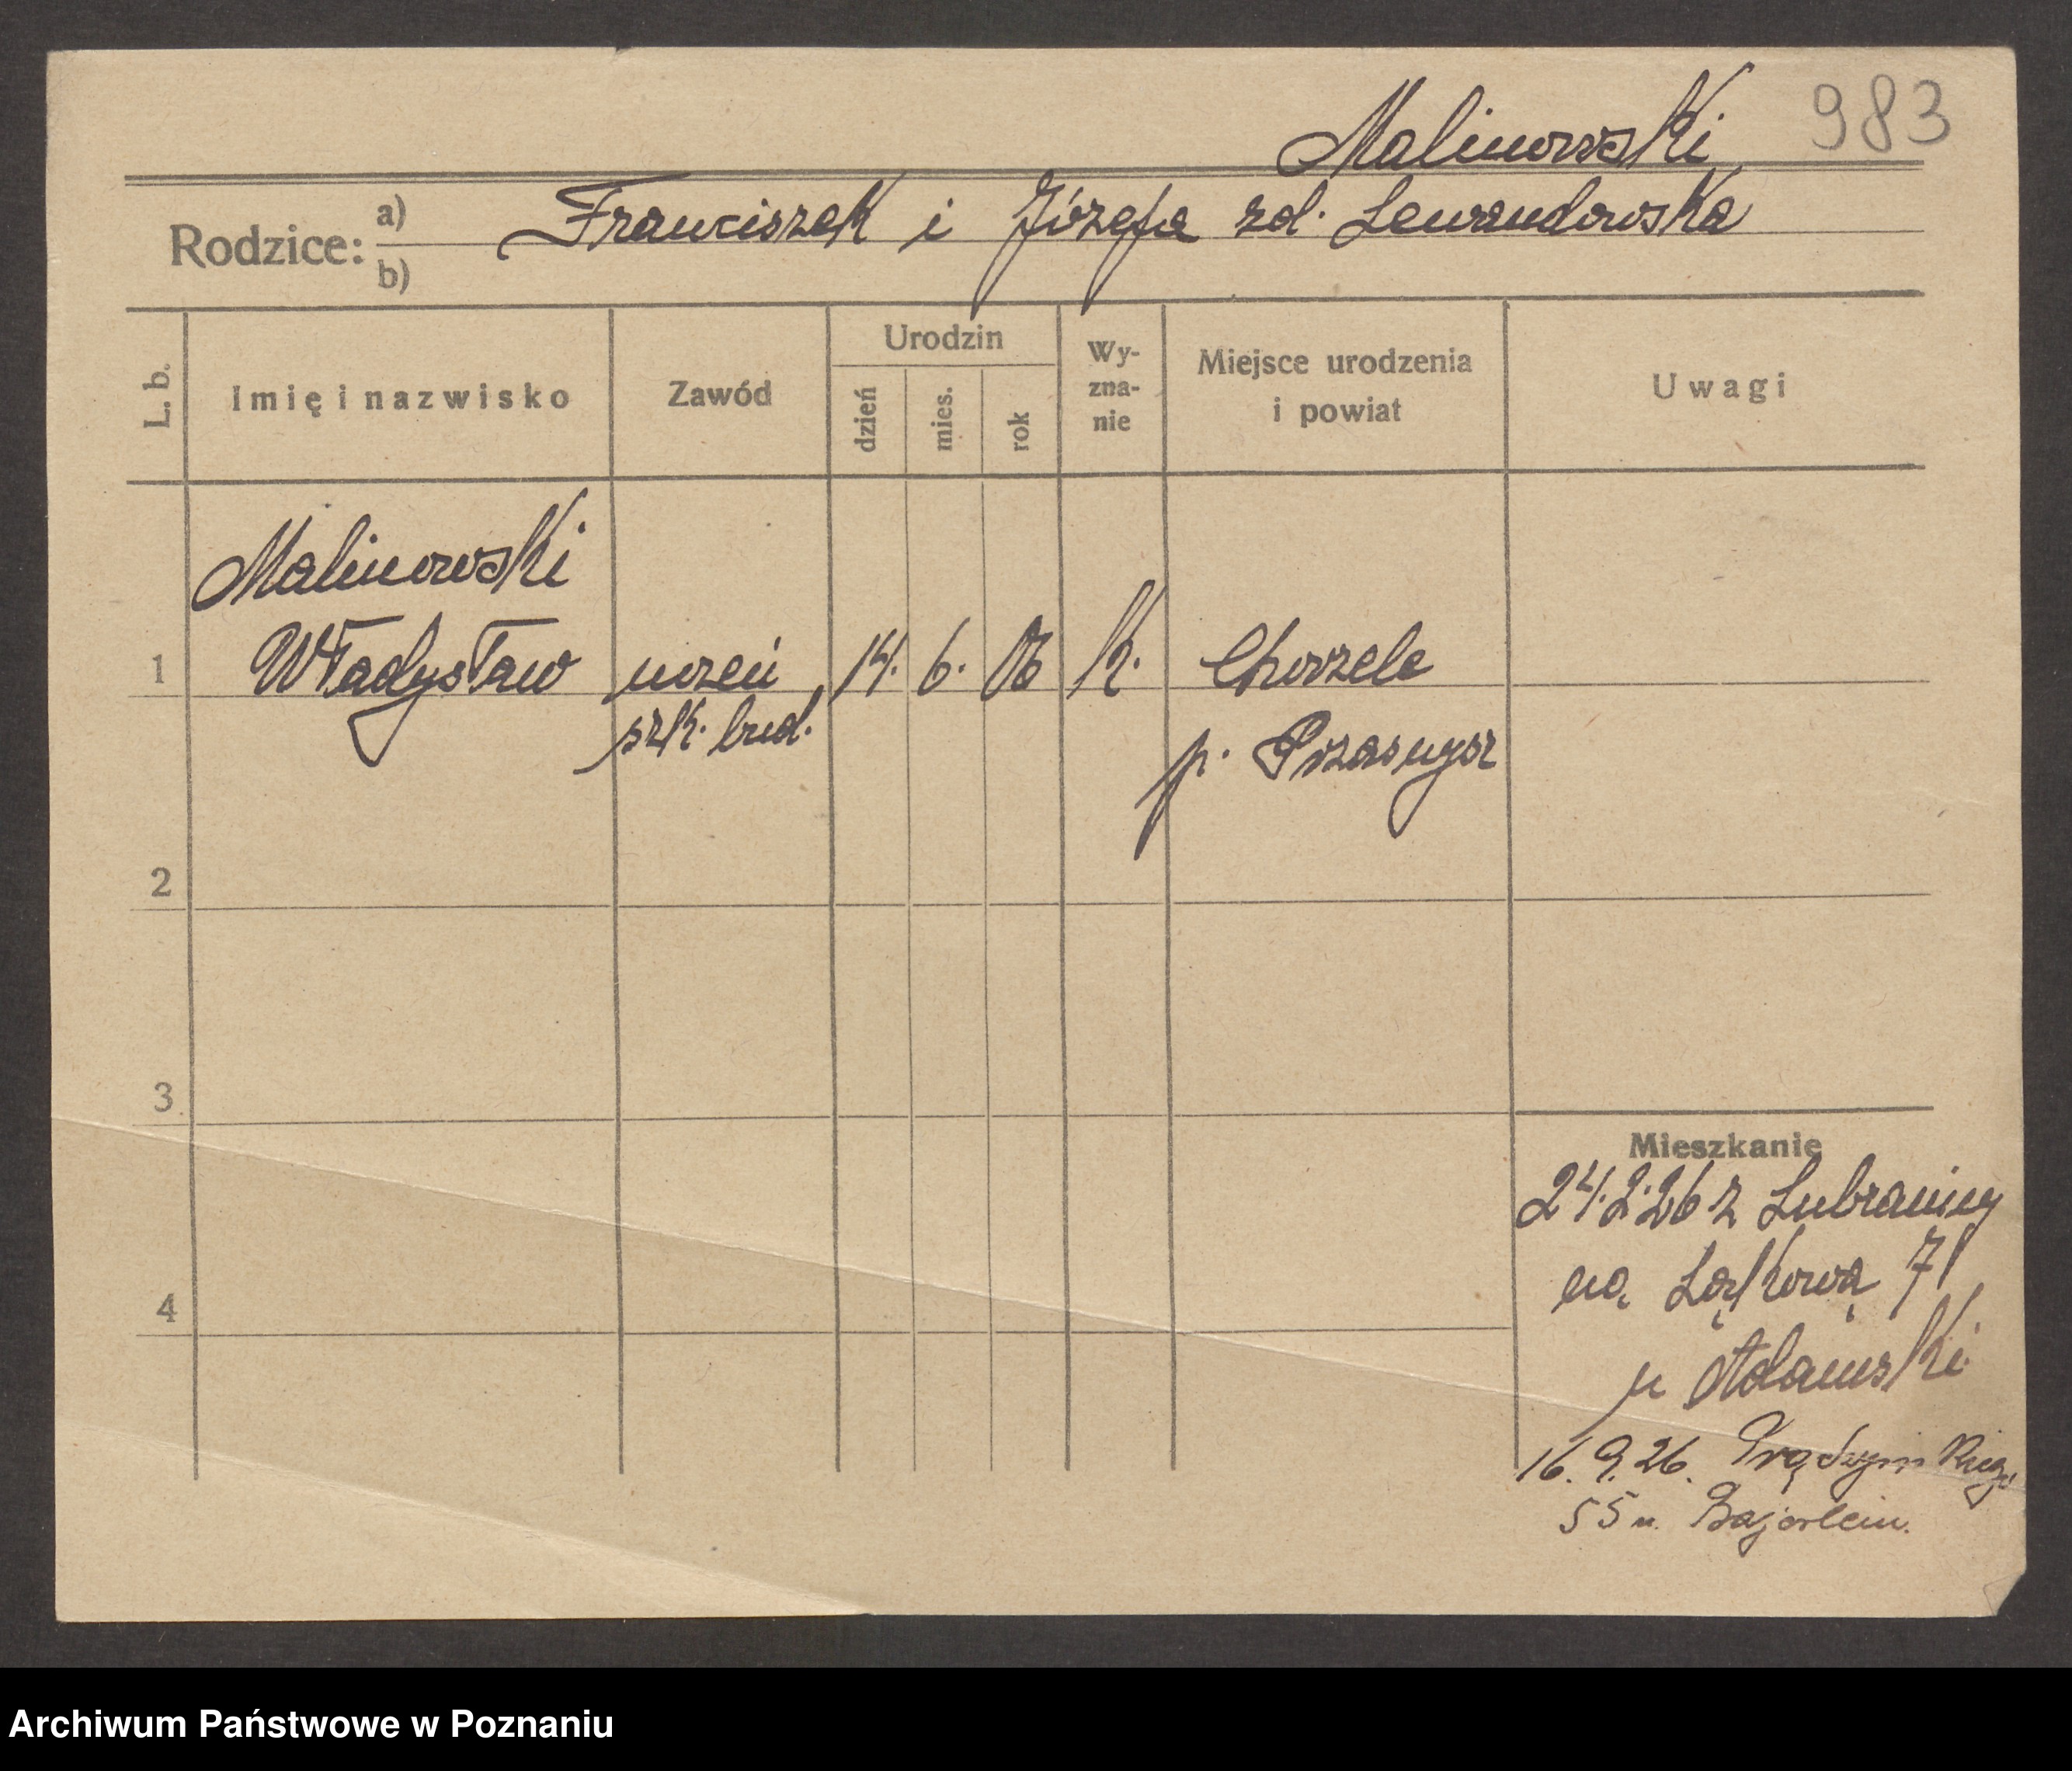 Malinowski 983
Rodzice: a) Franciszek i Józefa zd. Lewandowska
b)
L. b. Imię i nazwisko Zawód Urodzin dzień mies. rok Wy-zna-nie Miejsce urodzenia i powiat Uwagi
Malinowski
1 Władysław uczeń 14. 6. 06 k. Chorzele
szk. bud. p. Przasnysz
2
3
Mieszkanie
24.2.26 z Lubraniey
na Łąkową 71
4
u Adamski
16.9.26. Prądzyńskiego
55 u. Bajerlein.
Archiwum Państwowe w Poznaniu